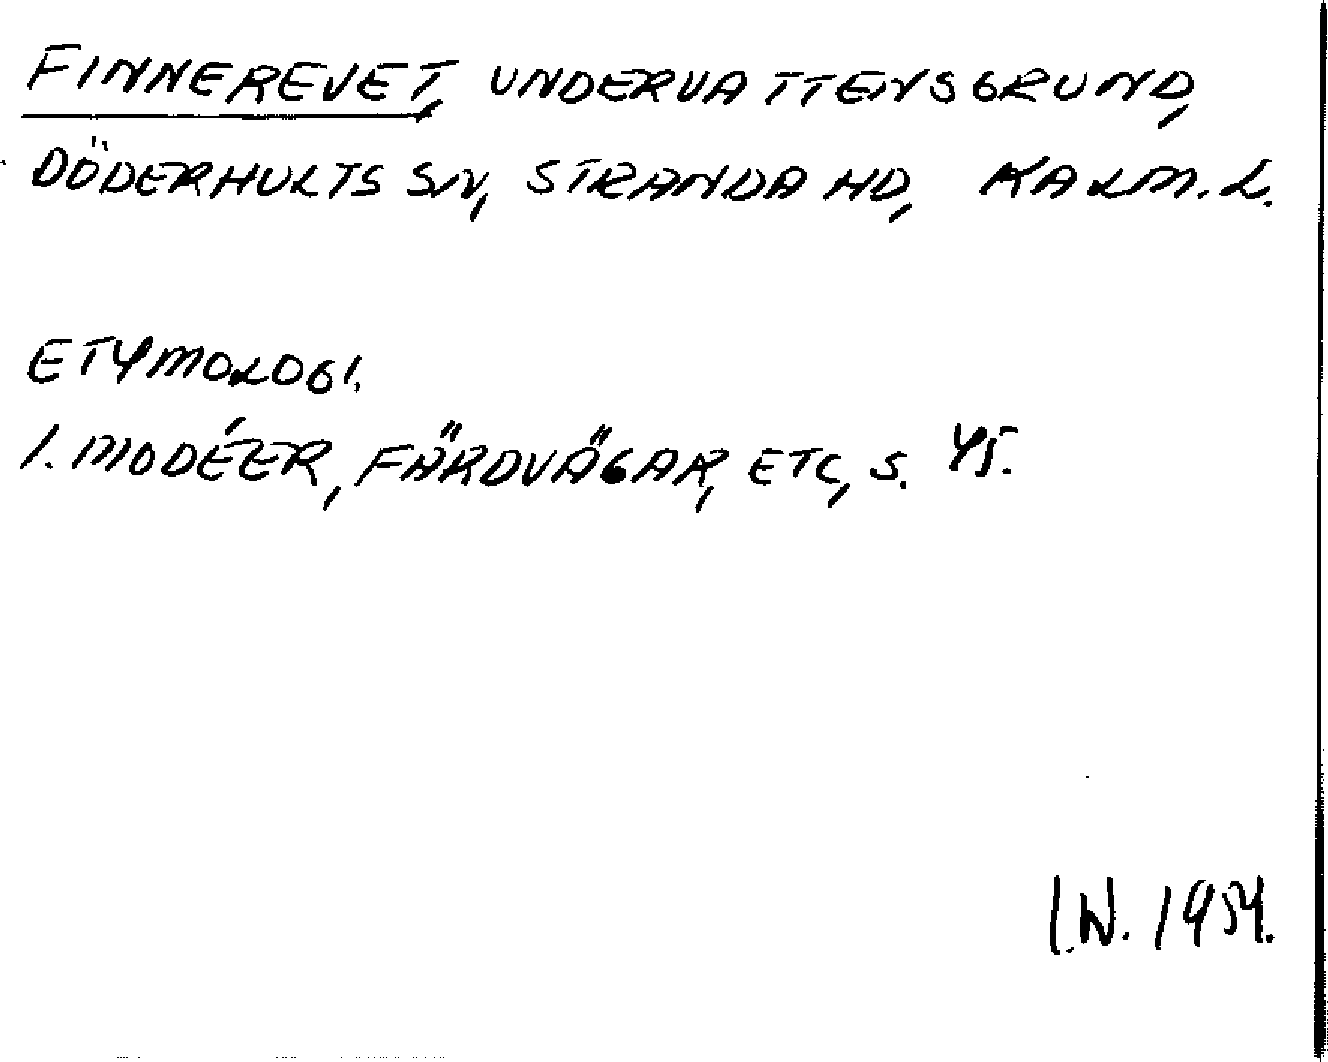 FINNEREVET, UNDERVATTENSGRUND,
DÖDERHULTS SN, STRANDA HD, KALM. L.
ETYMOLOGI.
I. MODÉER, FÄRDVÄGAR, ETC, S. 45.
I.N. 1954.